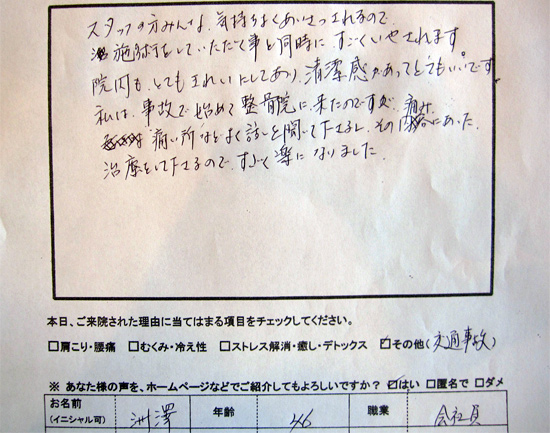 スタッフの方みんな、気持ちよくあいさつされるので、
施術をしていただく事と同時に、すごくいやされます
院内も、とてもきれいにしてあり、清潔感があってとてもいいです。
私は、事故で始めて整骨院に来たのですが、痛み
痛い所などよく話しを聞いて下さるし、その内容にあった
治療をして下さるので、すごく楽になりました
本日、ご来院された理由に当てはまる項目をチェックしてください。
□肩こり・腰痛 □むくみ・冷え性 □ストレス解消・癒し・デトックス ☑その他(交通事故)
※ あなた様の声を、ホームページなどでご紹介してもよろしいですか? ☑はい □匿名で □ダメ
お名前 洲澤 年齢 46 職業 会社員
(イニシャル可)